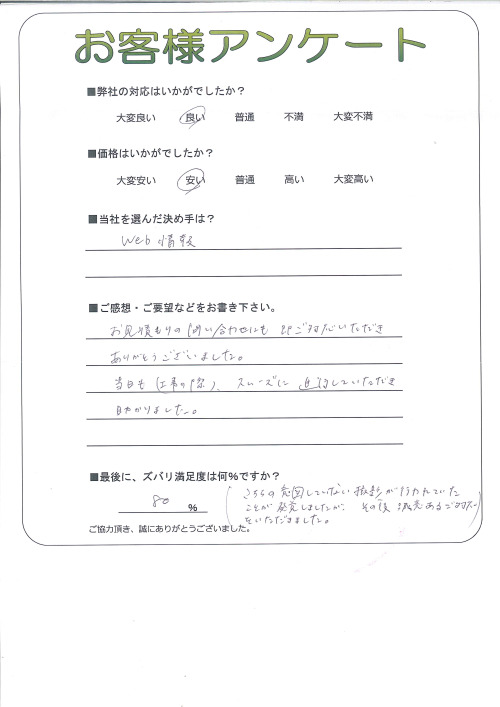 お客様アンケート
■弊社の対応はいかがでしたか？
大変良い 良い 普通 不満 大変不満
■価格はいかがでしたか？
大変安い 安い 普通 高い 大変高い
■当社を選んだ決め手は？
Web情報
■ご感想・ご要望などをお書き下さい。
お見積もりの問い合わせにも 即ご対応いただき
ありがとうございました。
当日も（工事の際）、スムーズに 進行していただき
助かりました。
■最後に、ズバリ満足度は何％ですか？
80 ％
（こちらの意図していない が行われていた
ことが発覚しましたが、その後 ある ご対応
をいただきました。
ご協力頂き、誠にありがとうございました。